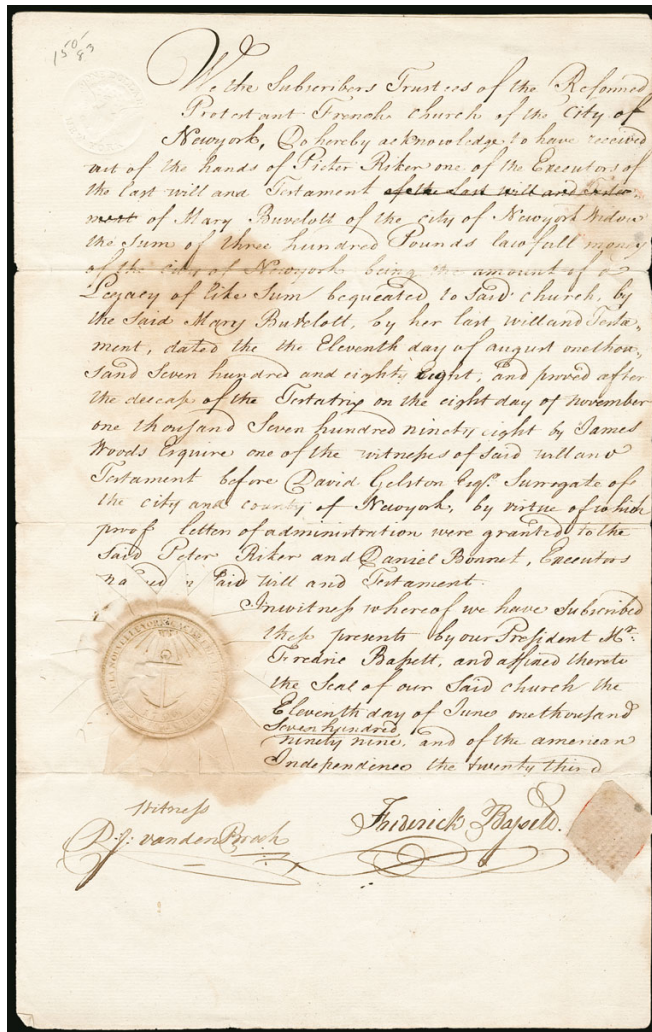 1501/83
We the Subscribers Trustees of the Reformed
Protestant French church of the City of
Newyork, Do hereby acknowledge to have received
out of the hands of Pieter Riker one of the Executors of
the last will and Testament of the Last Will and Testa-
ment of Mary Buvelott of the city of Newyork Widow
the Sum of three hundred Pounds lawfull money
of the city of Newyork being the amount of a
Legacy of like Sum bequeated to said church, by
the said Mary Buvelott, by her last will and Testa-
ment, dated the the Eleventh day of august onethou-
sand Seven hundred and eighty Eight, and proved after
the deceas of the Testatrix on the eight day of november
one thousand Seven hundred ninety eight by James
Woods Esquire one of the witnesses of said will and
Testament before David Gelston Esqr. Surrogate of
the city and county of Newyork, by virtue of which
proof letter of administration were granted to the
Said Peter Riker and Daniel Bonnet, Executors
named in said Will and Testament.
Inwitness whereof we have Subscribed
these presents by our President Mr:
Fredric Bassett, and affixed thereto
the Seal of our Said church the
Eleventh day of June onethousand
Seven hundred
ninety nine, and of the american
Independence the twenty third
Witness
P. J: vanden Broek
Friderick Bassett.